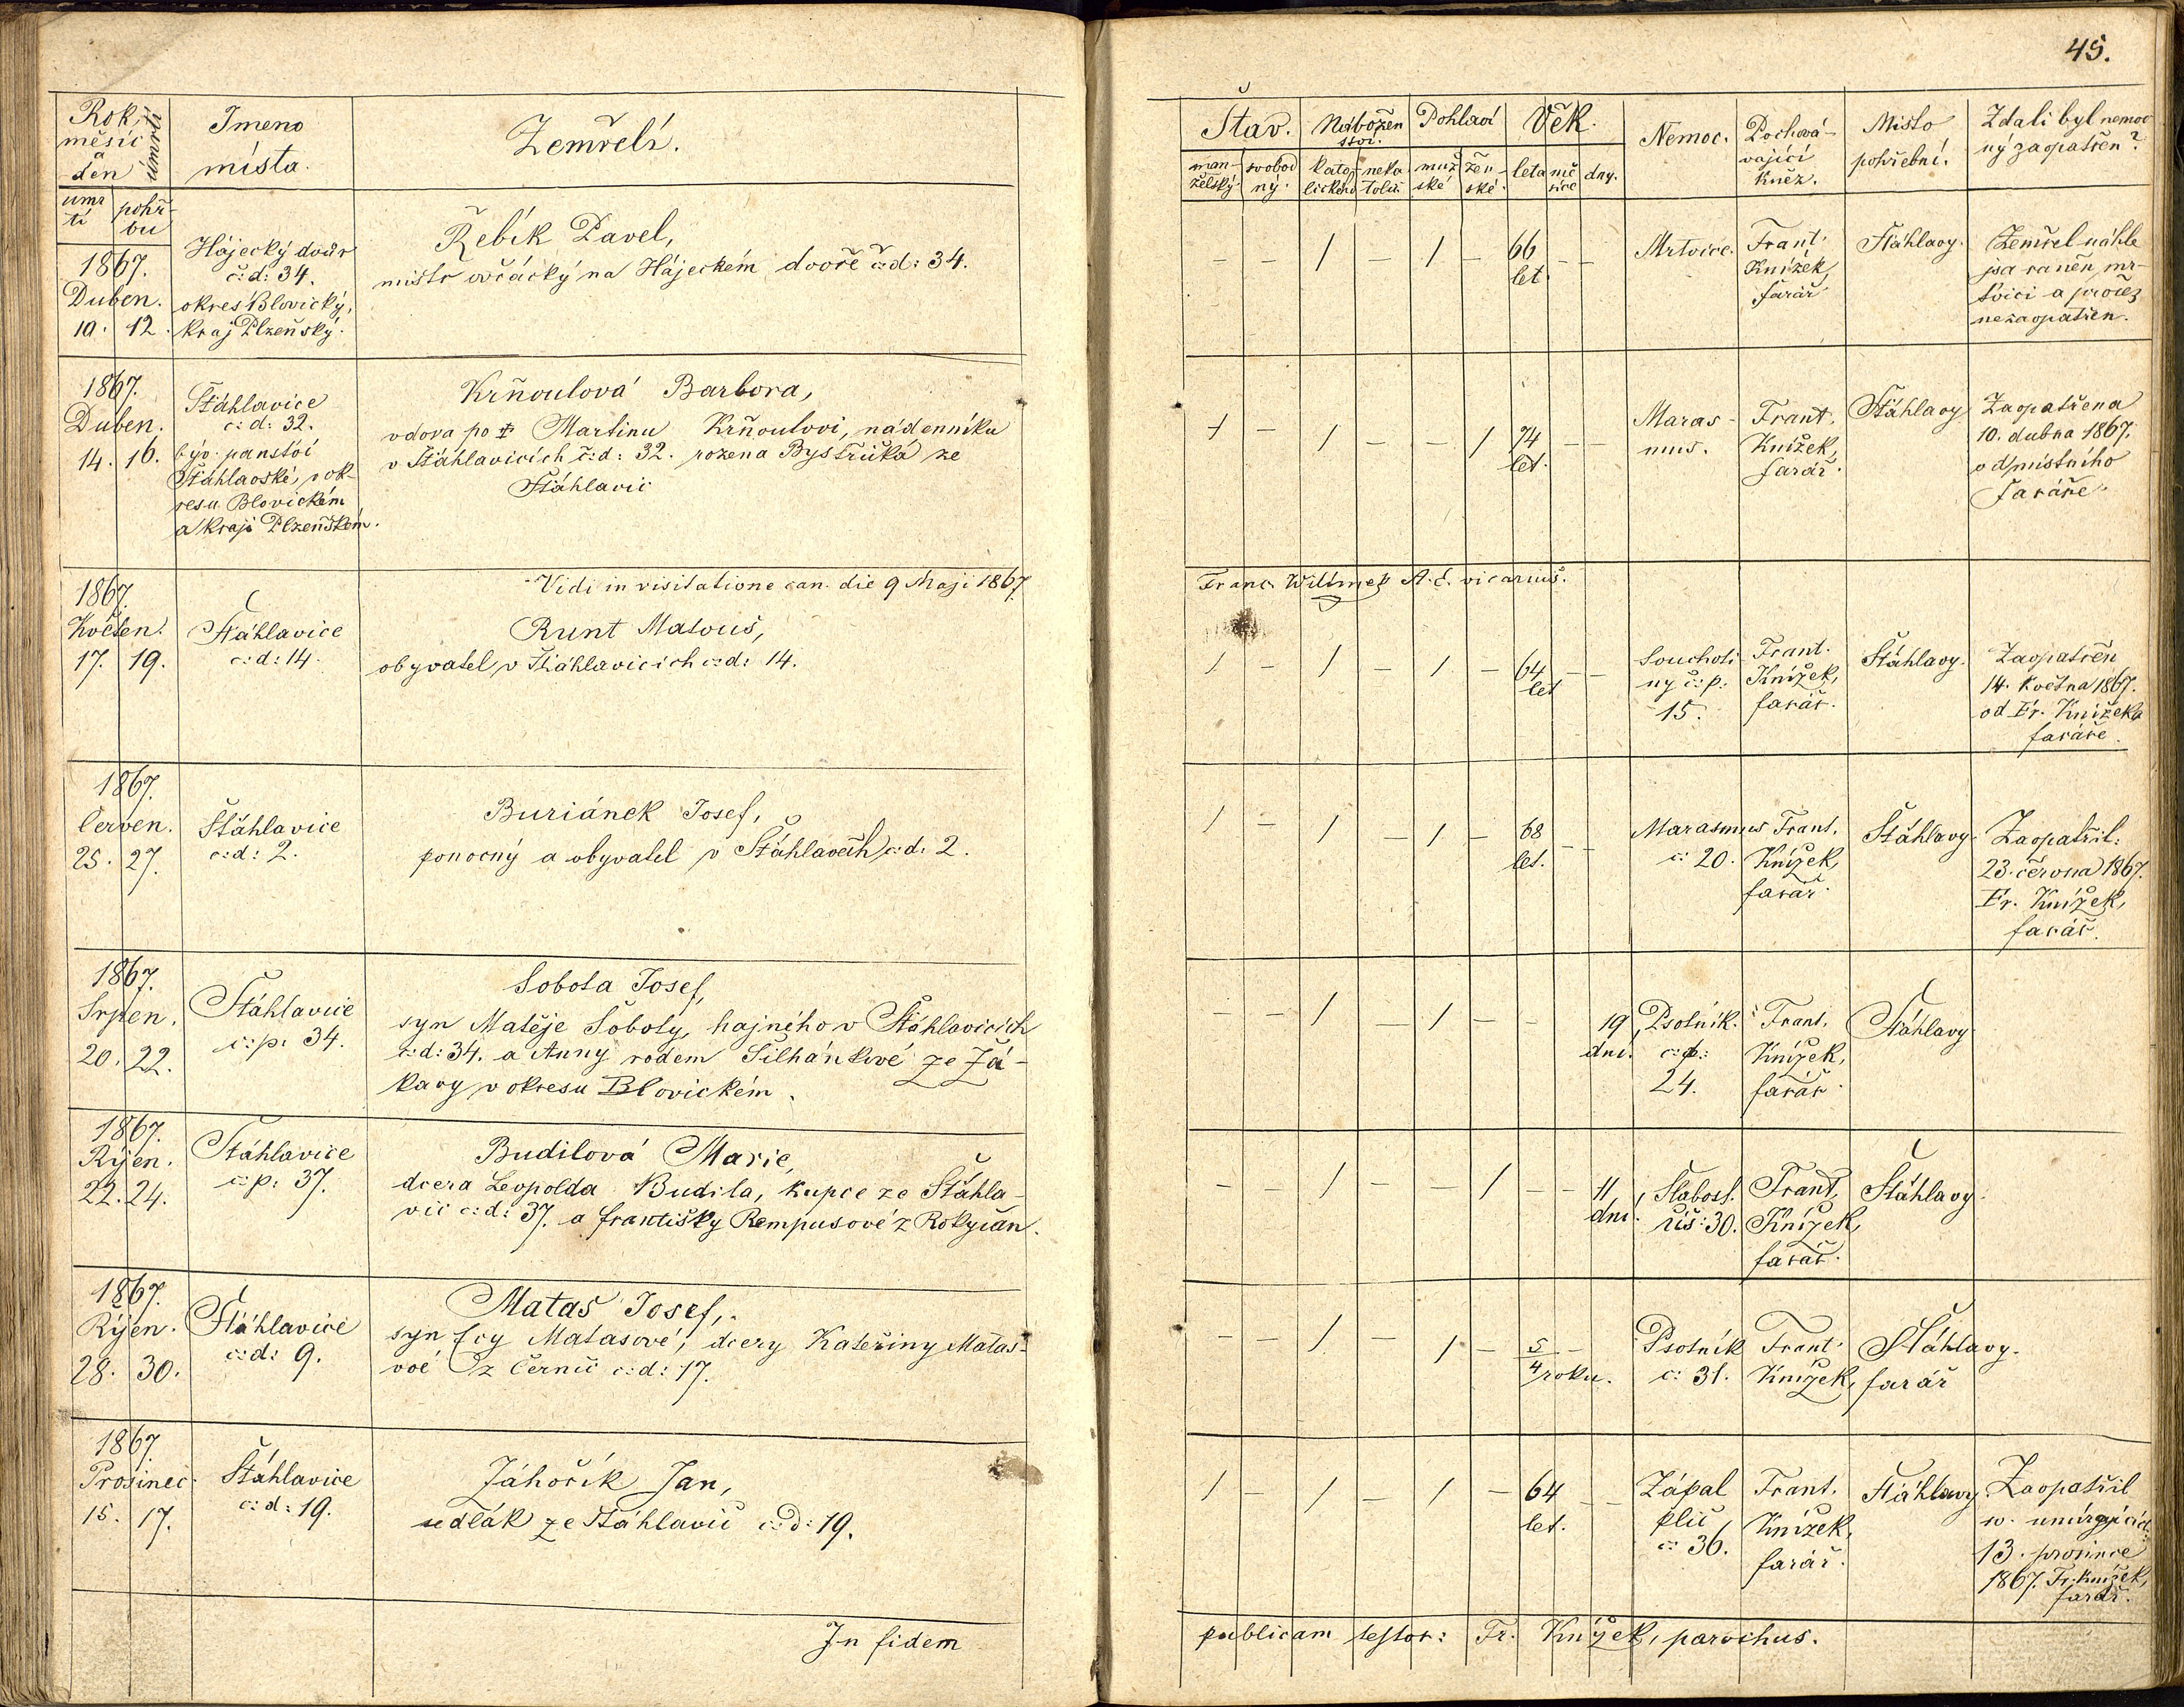 45.
Rok, měsíc a den úmrtí
Jmeno místa.
Zemřelí.
Stav.
Nábožen
ství.
Pohlaví
Věk.
Nemoc.
Pochová-
vající
Kněz.
Místo
pohřební.
Zdali byl nemoc
ný zaopatřen?
man-
želský.
svobod
ný.
kato-
lického
neka
tolic.
muž
ské
žen
ské.
leta
mě
síce
dny.
úmr
tí
pohř-
bu
1867.
Duben.
10. 12.
Hájecký dvůr
č:d: 34.
okres Blovický,
kraj Plzeňský.
Řebík Pavel,
mistr ovčácký na Hájeckém dvoře č:d: 34.
– – / – / – 66 – –
let.
Mrtvice.
Frant.
Knížek,
farář.
Šťáhlavy.
Zemřel náhle
jsa raněn mr-
tvicí a pročež
nezaopatřen.
1867.
Duben.
14. 16.
Šťáhlavice
č:d: 32.
býv. panství
Šťáhlavské, v ok-
resu Blovickém
a kraji Plzeňském.
Krňoulová Barbora,
vdova po † Martinu Krňoulovi, nádenníku
v Šťáhlavicích č:d: 32. rozena Bystřická ze
Šťáhlavic
/ – / – – / 74 – –
let.
Maras-
mus.
Frant.
Knížek,
farář.
Šťáhlavy
Zaopatřena
10. dubna 1867.
od místního
Faráře.
Vidi in visitatione can. die 9 Maji 1867
Franc. Wilímek A. č. vicarius.
1867.
Květen.
17. 19.
Šťáhlavice
č:d: 14.
Runt Matouš,
obyvatel v Šťáhlavicích č:d: 14.
/ – / – / – 64 – –
let
Souchoti-
ny č:p:
15.
Frant.
Knížek,
farář.
Šťáhlavy.
Zaopatřen
14. Května 1867.
od Fr. Knížeka
faráře.
1867.
Červen.
25. 27.
Šťáhlavice
č:d: 2.
Buriánek Josef,
ponocný a obyvatel v Šťáhlavcích č:d: 2.
/ – / – / – 68 – –
let.
Marasmus
č: 20.
Frant.
Knížek,
farář.
Šťáhlavy.
Zaopatřil:
23. června 1867.
Fr. Knížek,
farář.
1867.
Srpen.
20. 22.
Šťáhlavice
č:p: 34.
Sobota Josef,
syn Matěje Soboty, hajného v Šťáhlavicích
č:d: 34. a Anny rodem Šilhánkové ze Žá-
kavy v okresu Blovickém.
– – / – / – – 19
dní.
Psotník.
č:p:
24.
Frant.
Knížek,
farář.
Šťáhlavy
1867.
Říjen.
22. 24.
Šťáhlavice
č:p: 37.
Budilová Marie,
dcera Leopolda Budila, kupce ze Šťáhla-
vic č:d: 37. a Františky Rempusové z Rokycan.
– – / – – / – – 11
dní.
Slabost.
čis: 30.
Frant.
Knížek,
farář.
Šťáhlavy.
1867.
Říjen.
28. 30.
Šťáhlavice
č:d: 9.
Mataš Josef,
syn Evy Matasové, dcery Kateřiny Mataso-
vé z Černic č:d: 17.
– – / – / – 5/4 roku.
Psotník
č: 31.
Frant.
Knížek, farář
Šťáhlavy.
1867
Prosinec.
15. 17.
Šťáhlavice
č:d: 19.
Jáhořík Jan,
sedlák ze Šťáhlavic č:d: 19.
/ – / – / – 64 – –
let.
Zápal
plic
č: 36.
Frant.
Knížek,
farář.
Šťáhlavy.
Zaopatřil
13. prosince
1867. Fr. Knížek,
farář.
In fidem publicam testor: Fr. Knížek, parochus.